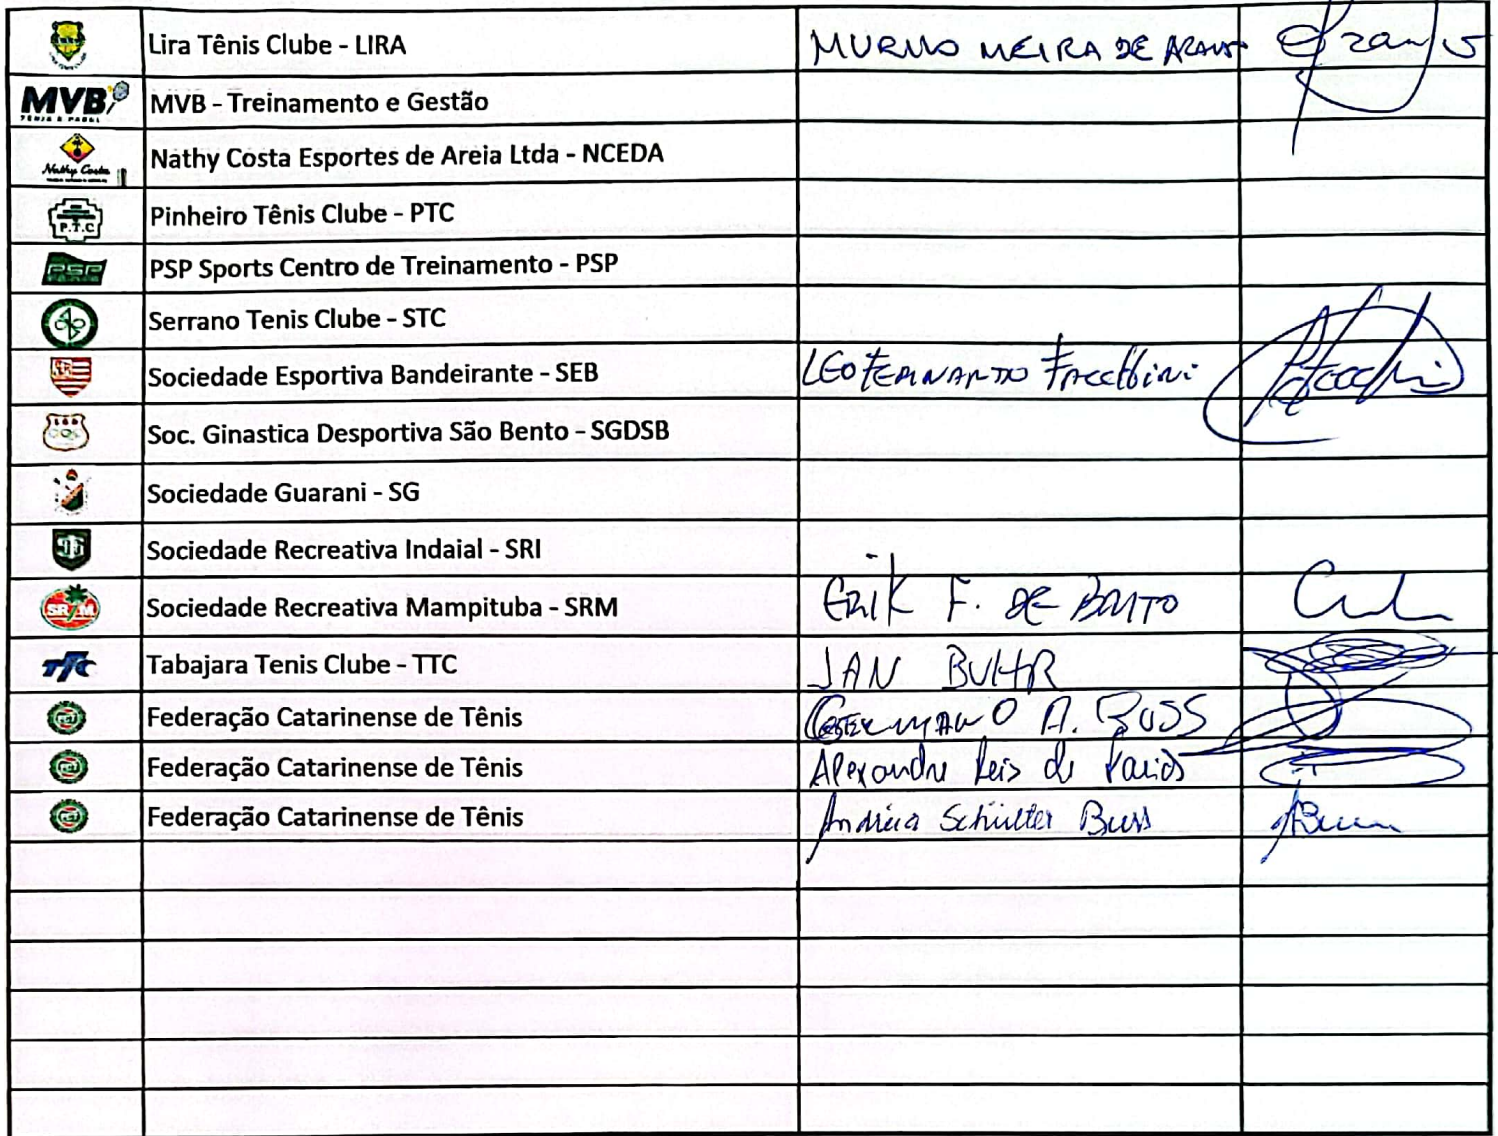 Lira Tênis Clube - LIRA MURILO MEIRA DE ARAUJO Araujo
MVB TÊNIS & PADEL MVB - Treinamento e Gestão
Nathy Costa Nathy Costa Esportes de Areia Ltda - NCEDA
P.T.C Pinheiro Tênis Clube - PTC
PSP PSP Sports Centro de Treinamento - PSP
Serrano Tenis Clube - STC
Sociedade Esportiva Bandeirante - SEB LEO FERNANDO FACCHINI
Soc. Ginastica Desportiva São Bento - SGDSB
Sociedade Guarani - SG
Sociedade Recreativa Indaial - SRI
SRM Sociedade Recreativa Mampituba - SRM ERIK F. DE BRITO
TTC Tabajara Tenis Clube - TTC JAN BUHR
Federação Catarinense de Tênis GERMANO A. BUSS
Federação Catarinense de Tênis Alexandre Reis de
Federação Catarinense de Tênis Andréia Schürter Buss ABuss